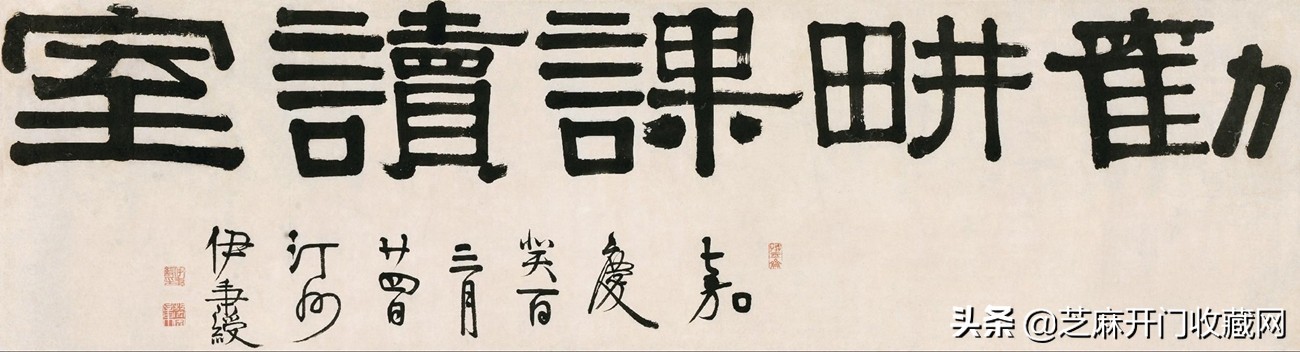 勸畊課讀室
嘉
慶
癸酉
三月
廿四日
汀州
伊秉綬
头条 @芝麻开门收藏网